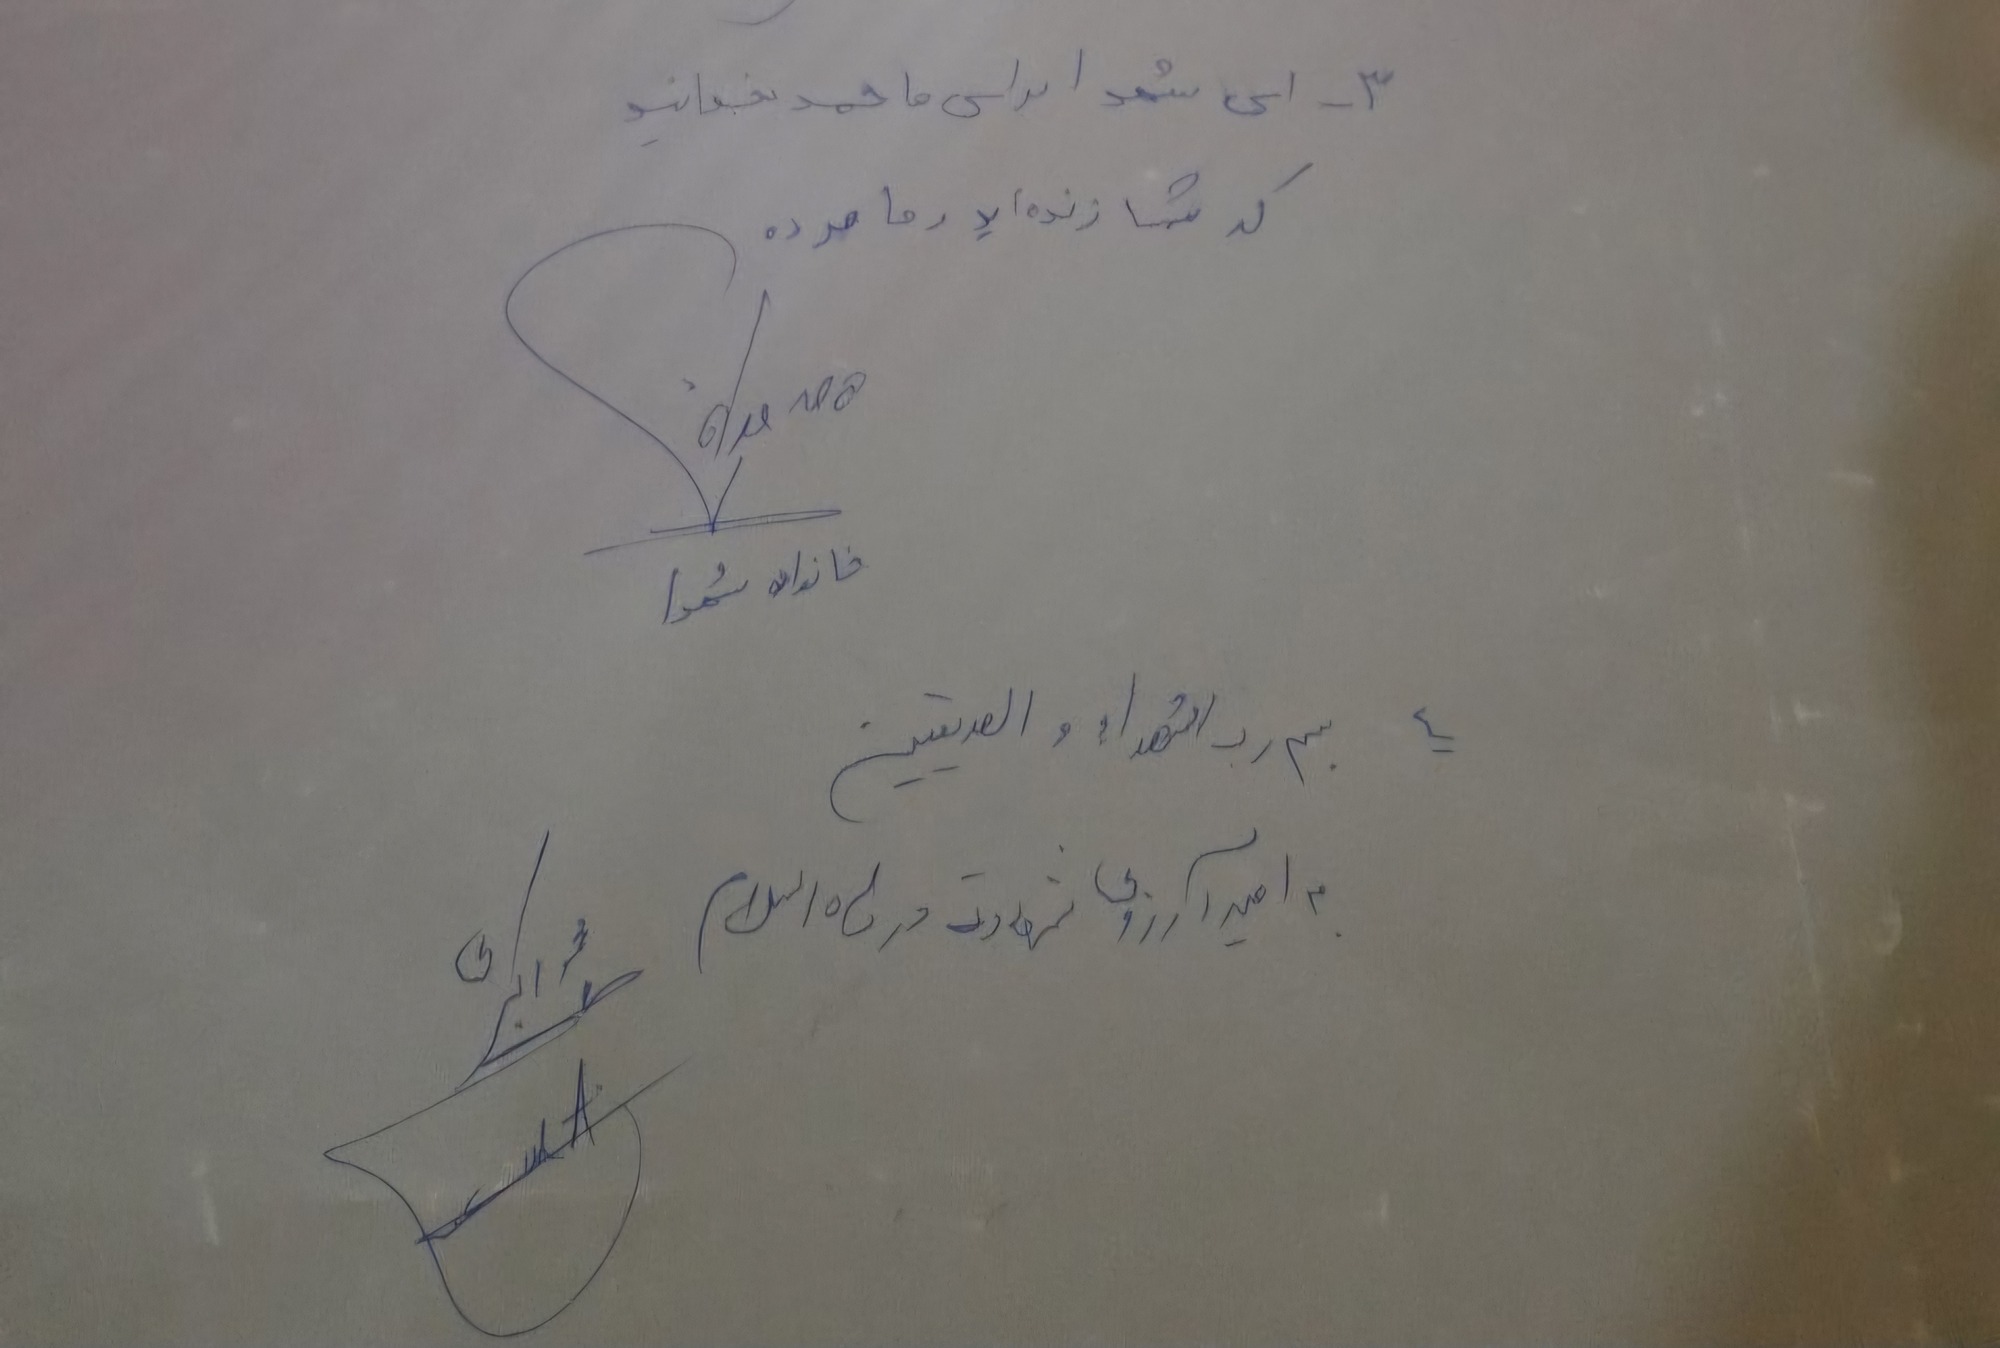 ۳- ای شهدا برای ما حمد بخوانید
که شما زنده اید و ما مرده
خاندان شهدا
٤ بسم رب الشهداء و الصدیقین
به امید آرزوی شهادت در راه اسلام